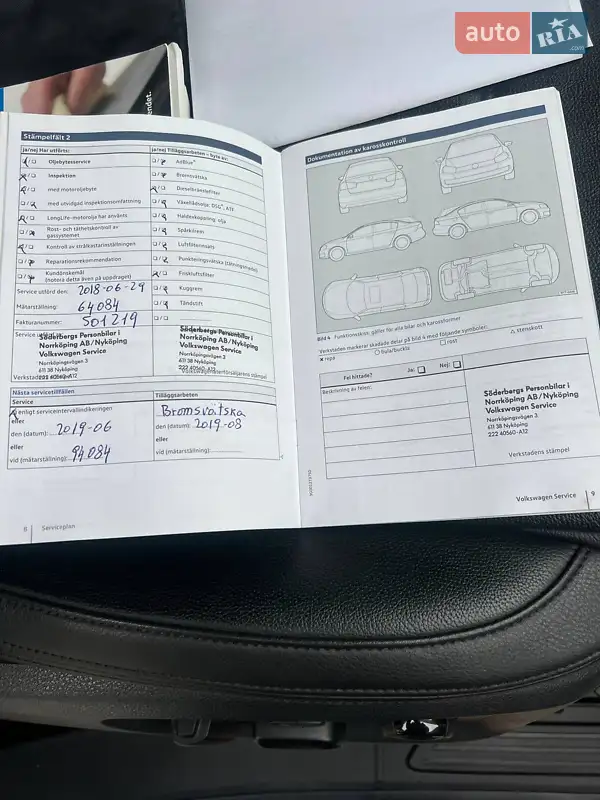 auto RIA.com
endet.
Stämpelfält 2
ja/nej Har utförts:
Oljebytesservice
Inspektion
med motoroljebyte
med utvidgad inspektionsomfattning
LongLife-motorolja har använts
Rost- och täthetskontroll av
gassystemet
Kontroll av strålkastarinställningen
Reparationsrekommendation
Kundönskemål
(notera detta även på uppdraget)
Service utförd den: 2018-06-29
Mätarställning: 64084
Fakturanummer: 501219
ja/nej Tilläggsarbeten – byte av:
AdBlue®
Bromsvätska
Dieselbränslefilter
Växellådsolja: DSG®, A1E
Haldexkoppling: olja
Spårkilrem
Luftfilterinsats
Punkteringsvätska (tätningsmedel)
Friskluftsfilter
Kuggrem
Tändstift
Service utförd
Söderbergs Personbilar i
Norrköping AB/Nyköping
Volkswagen Service
Norrköpingsvägen 3
611 38 Nyköping
222 40560-A12
Verkstadens stämpel
Söderbergs Personbilar i
Norrköping AB/Nyköping
Volkswagen Service
Norrköpingsvägen 3
611 38 Nyköping
222 40560-A12
Nästa servicetillfällen
Service
enligt serviceintervallindikeringen
eller
den (datum): 2019-06
eller
vid (mätarställning): 94084
Tilläggsarbeten
Bromsvätska
den (datum): 2019-08
eller
vid (mätarställning):
8 Serviceplan
Dokumentation av karosskontroll
Bild 4 Funktionsskiss: gäller för alla bilar och karossformer
Verkstaden markerar skadade delar på bild 4 med följande symboler:
× repa
○ byla/buckla
□ rost
△ stenskott
Fel hittade? Ja: Nej:
Beskrivning av felen:
Söderbergs Personbilar i
Norrköping AB/Nyköping
Volkswagen Service
Norrköpingsvägen 3
611 38 Nyköping
222 40560-A12
Verkstadens stämpel
Volkswagen Service 9